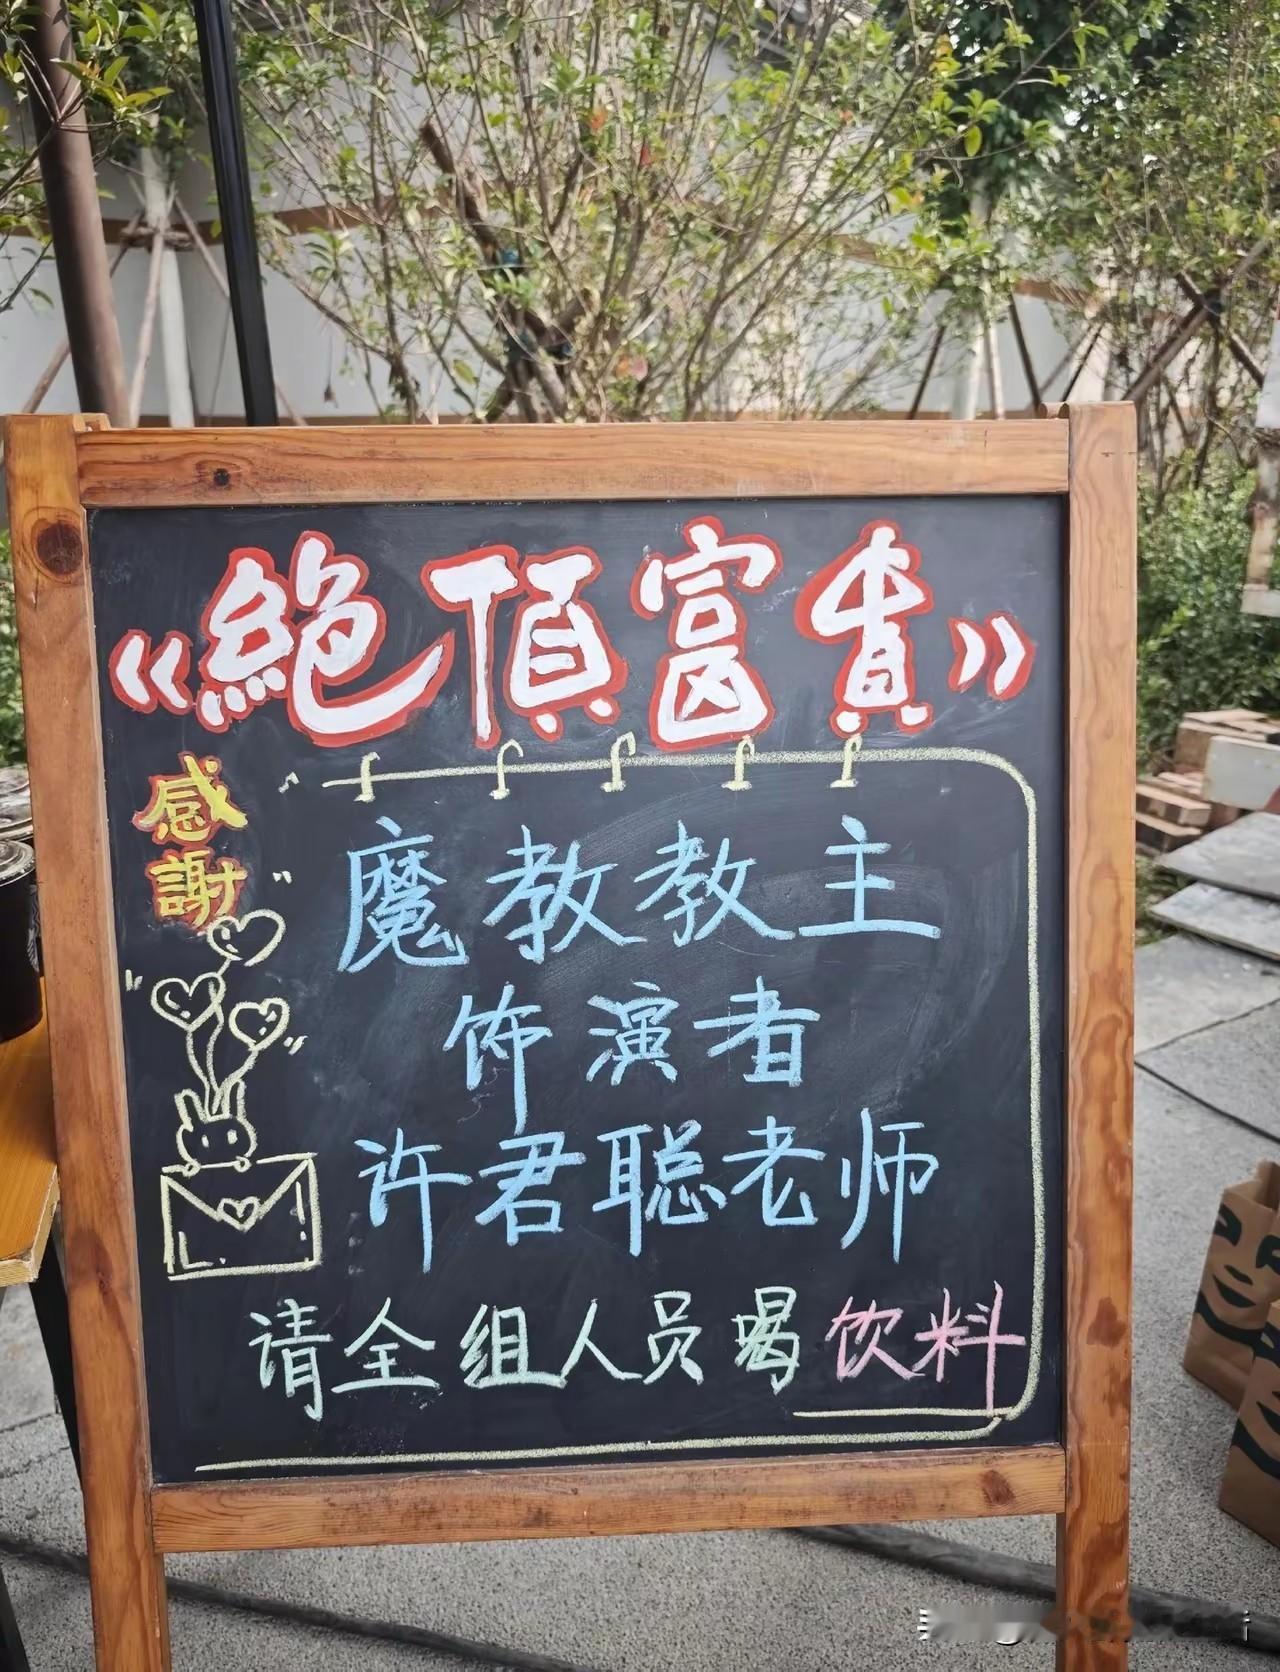 《絶頂富貴》
感謝
魔教教主
饰演者
许君聪老师
请全组人员喝饮料